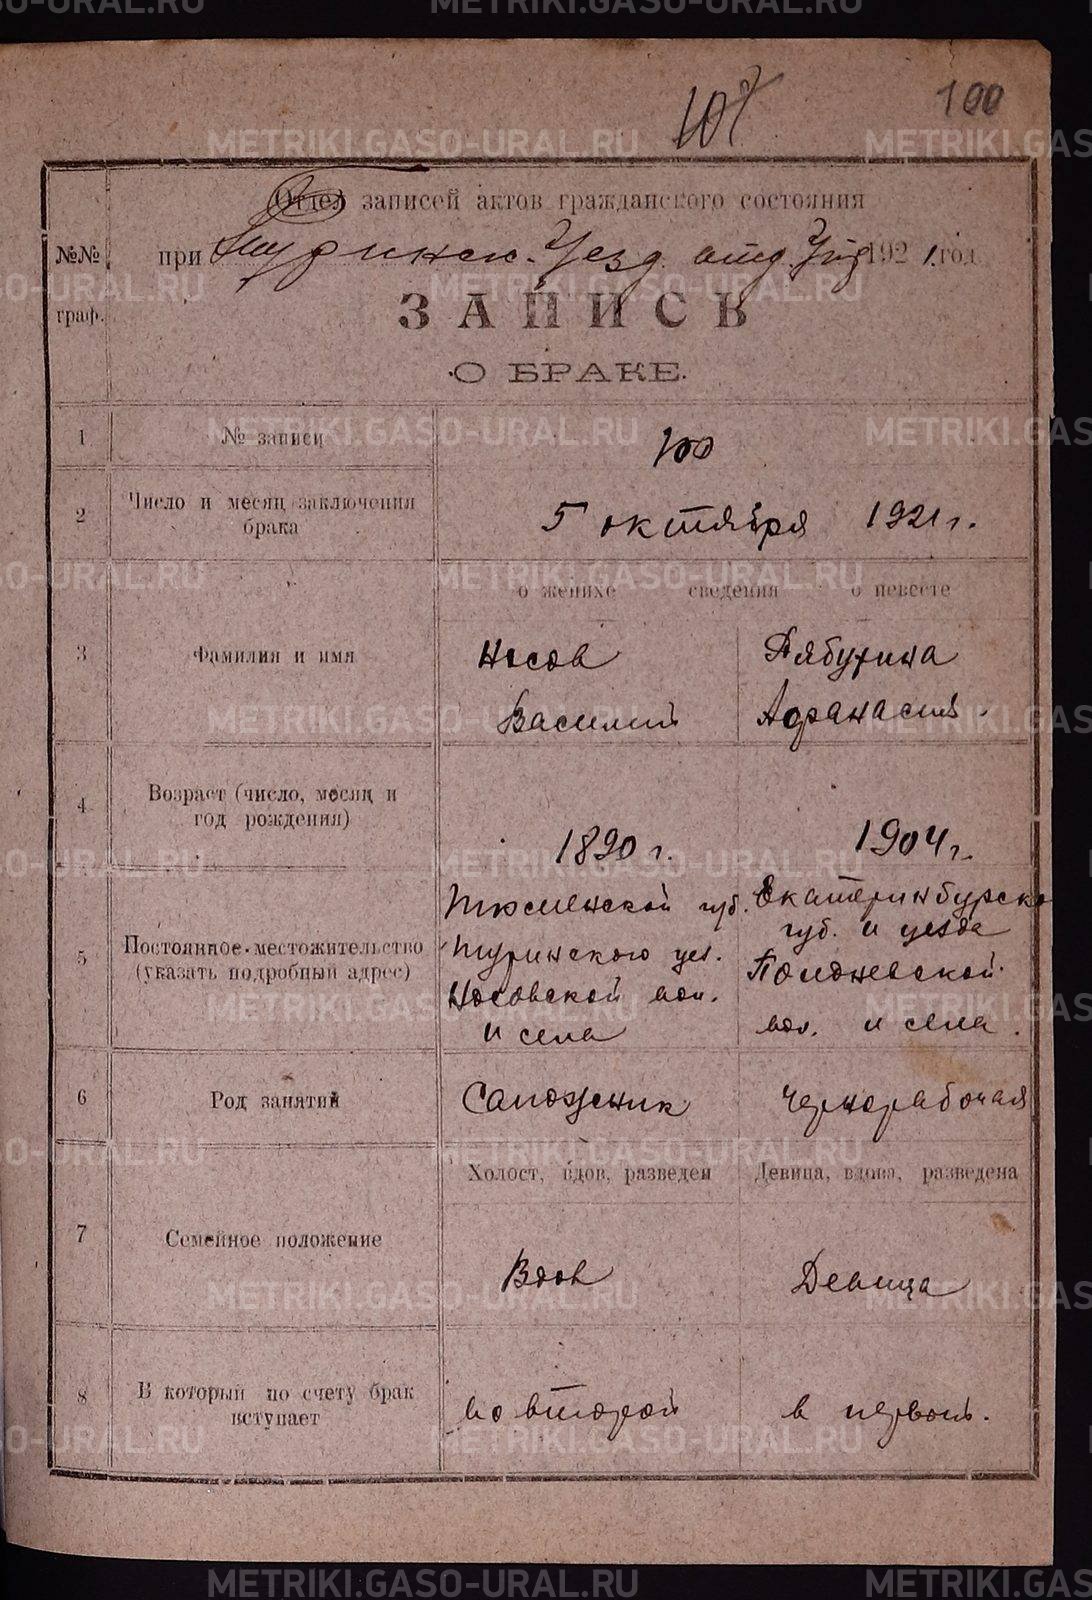 107
100
Отдел записей актов гражданского состояния
№№ при Туринск. Уезд. отд. Упр 1921. год
граф.
ЗАПИСЬ
О БРАКЕ.
1 № записи 100
2 Число и месяц заключения брака 5 октября 1921 г.
о женихе сведения о невесте
3 Фамилия и имя Носов
Василий
Рябухина
Афанасия.
4 Возраст (число, месяц и год рождения) 1890 г. 1904 г.
5 Постоянное местожительство
(указать подробный адрес)
Тюменской губ.
Туринского уез.
Носовской вол.
и села
Екатеринбургско
губ. и уезда
Полдневской
вол. и села.
6 Род занятий Сапожник Чернорабочая
Холост, вдов, разведен Девица, вдова, разведена
7 Семейное положение Вдов Девица
8 В который по счету брак
вступает
во второй в первый.
METRIKI.GASO-URAL.RU